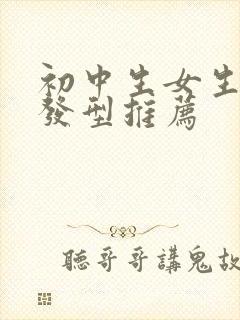 初中生女生
發型推薦
聽哥哥講鬼故